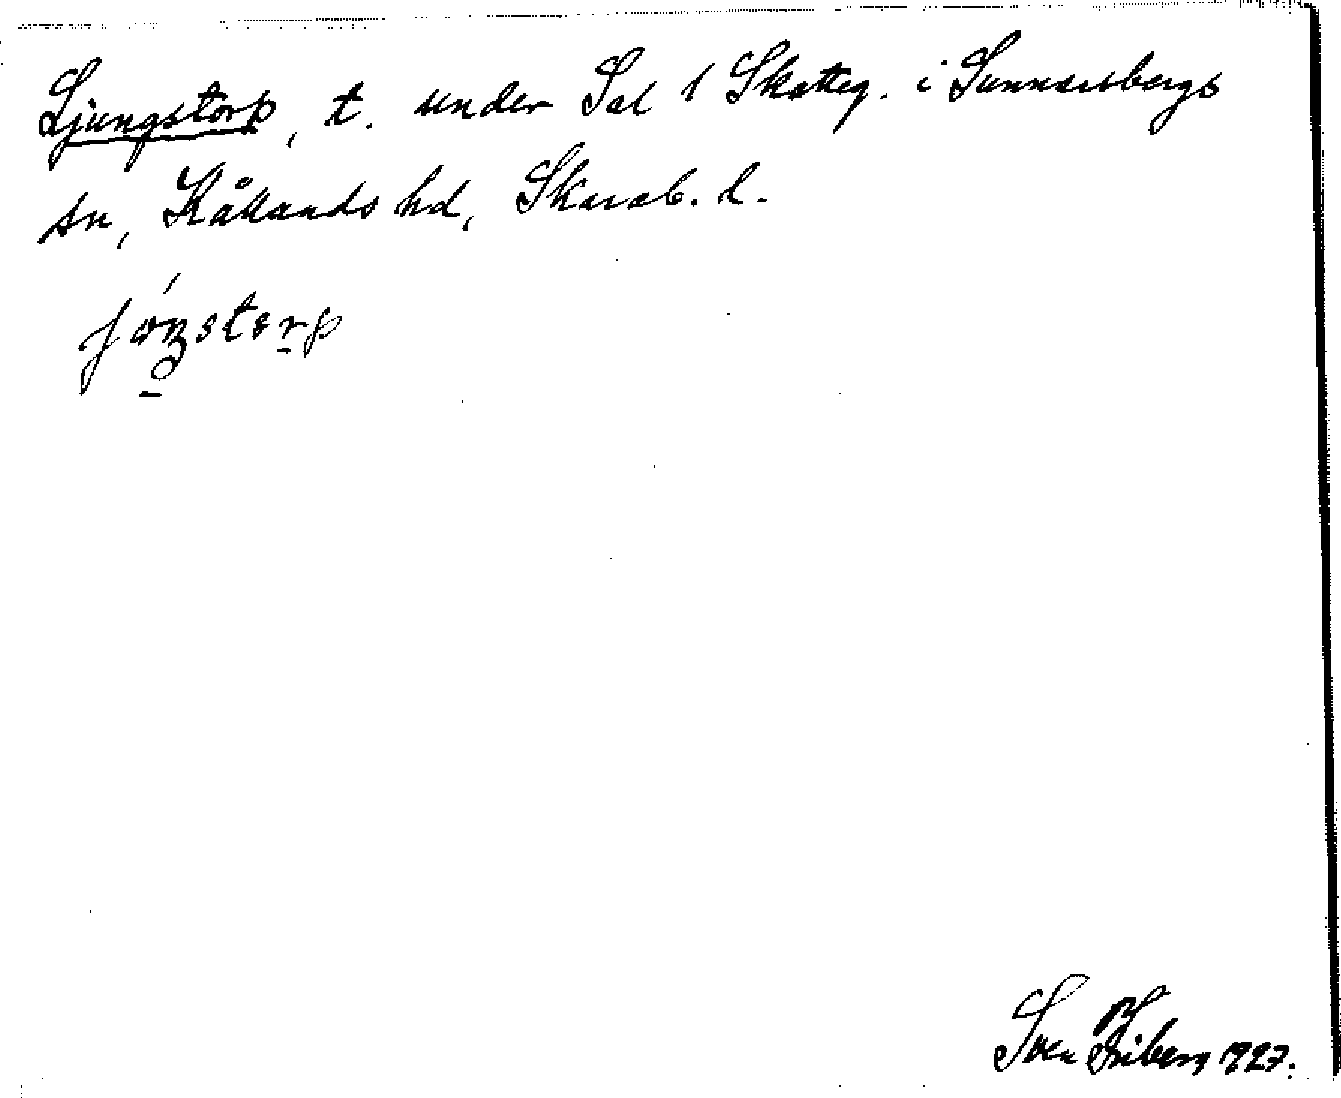 Ljungstorp, t. under Sal 1 Skatteg. i Sunnersbergs
sn, Kållands hd, Skarab. l.
Sven Friberg 1927.